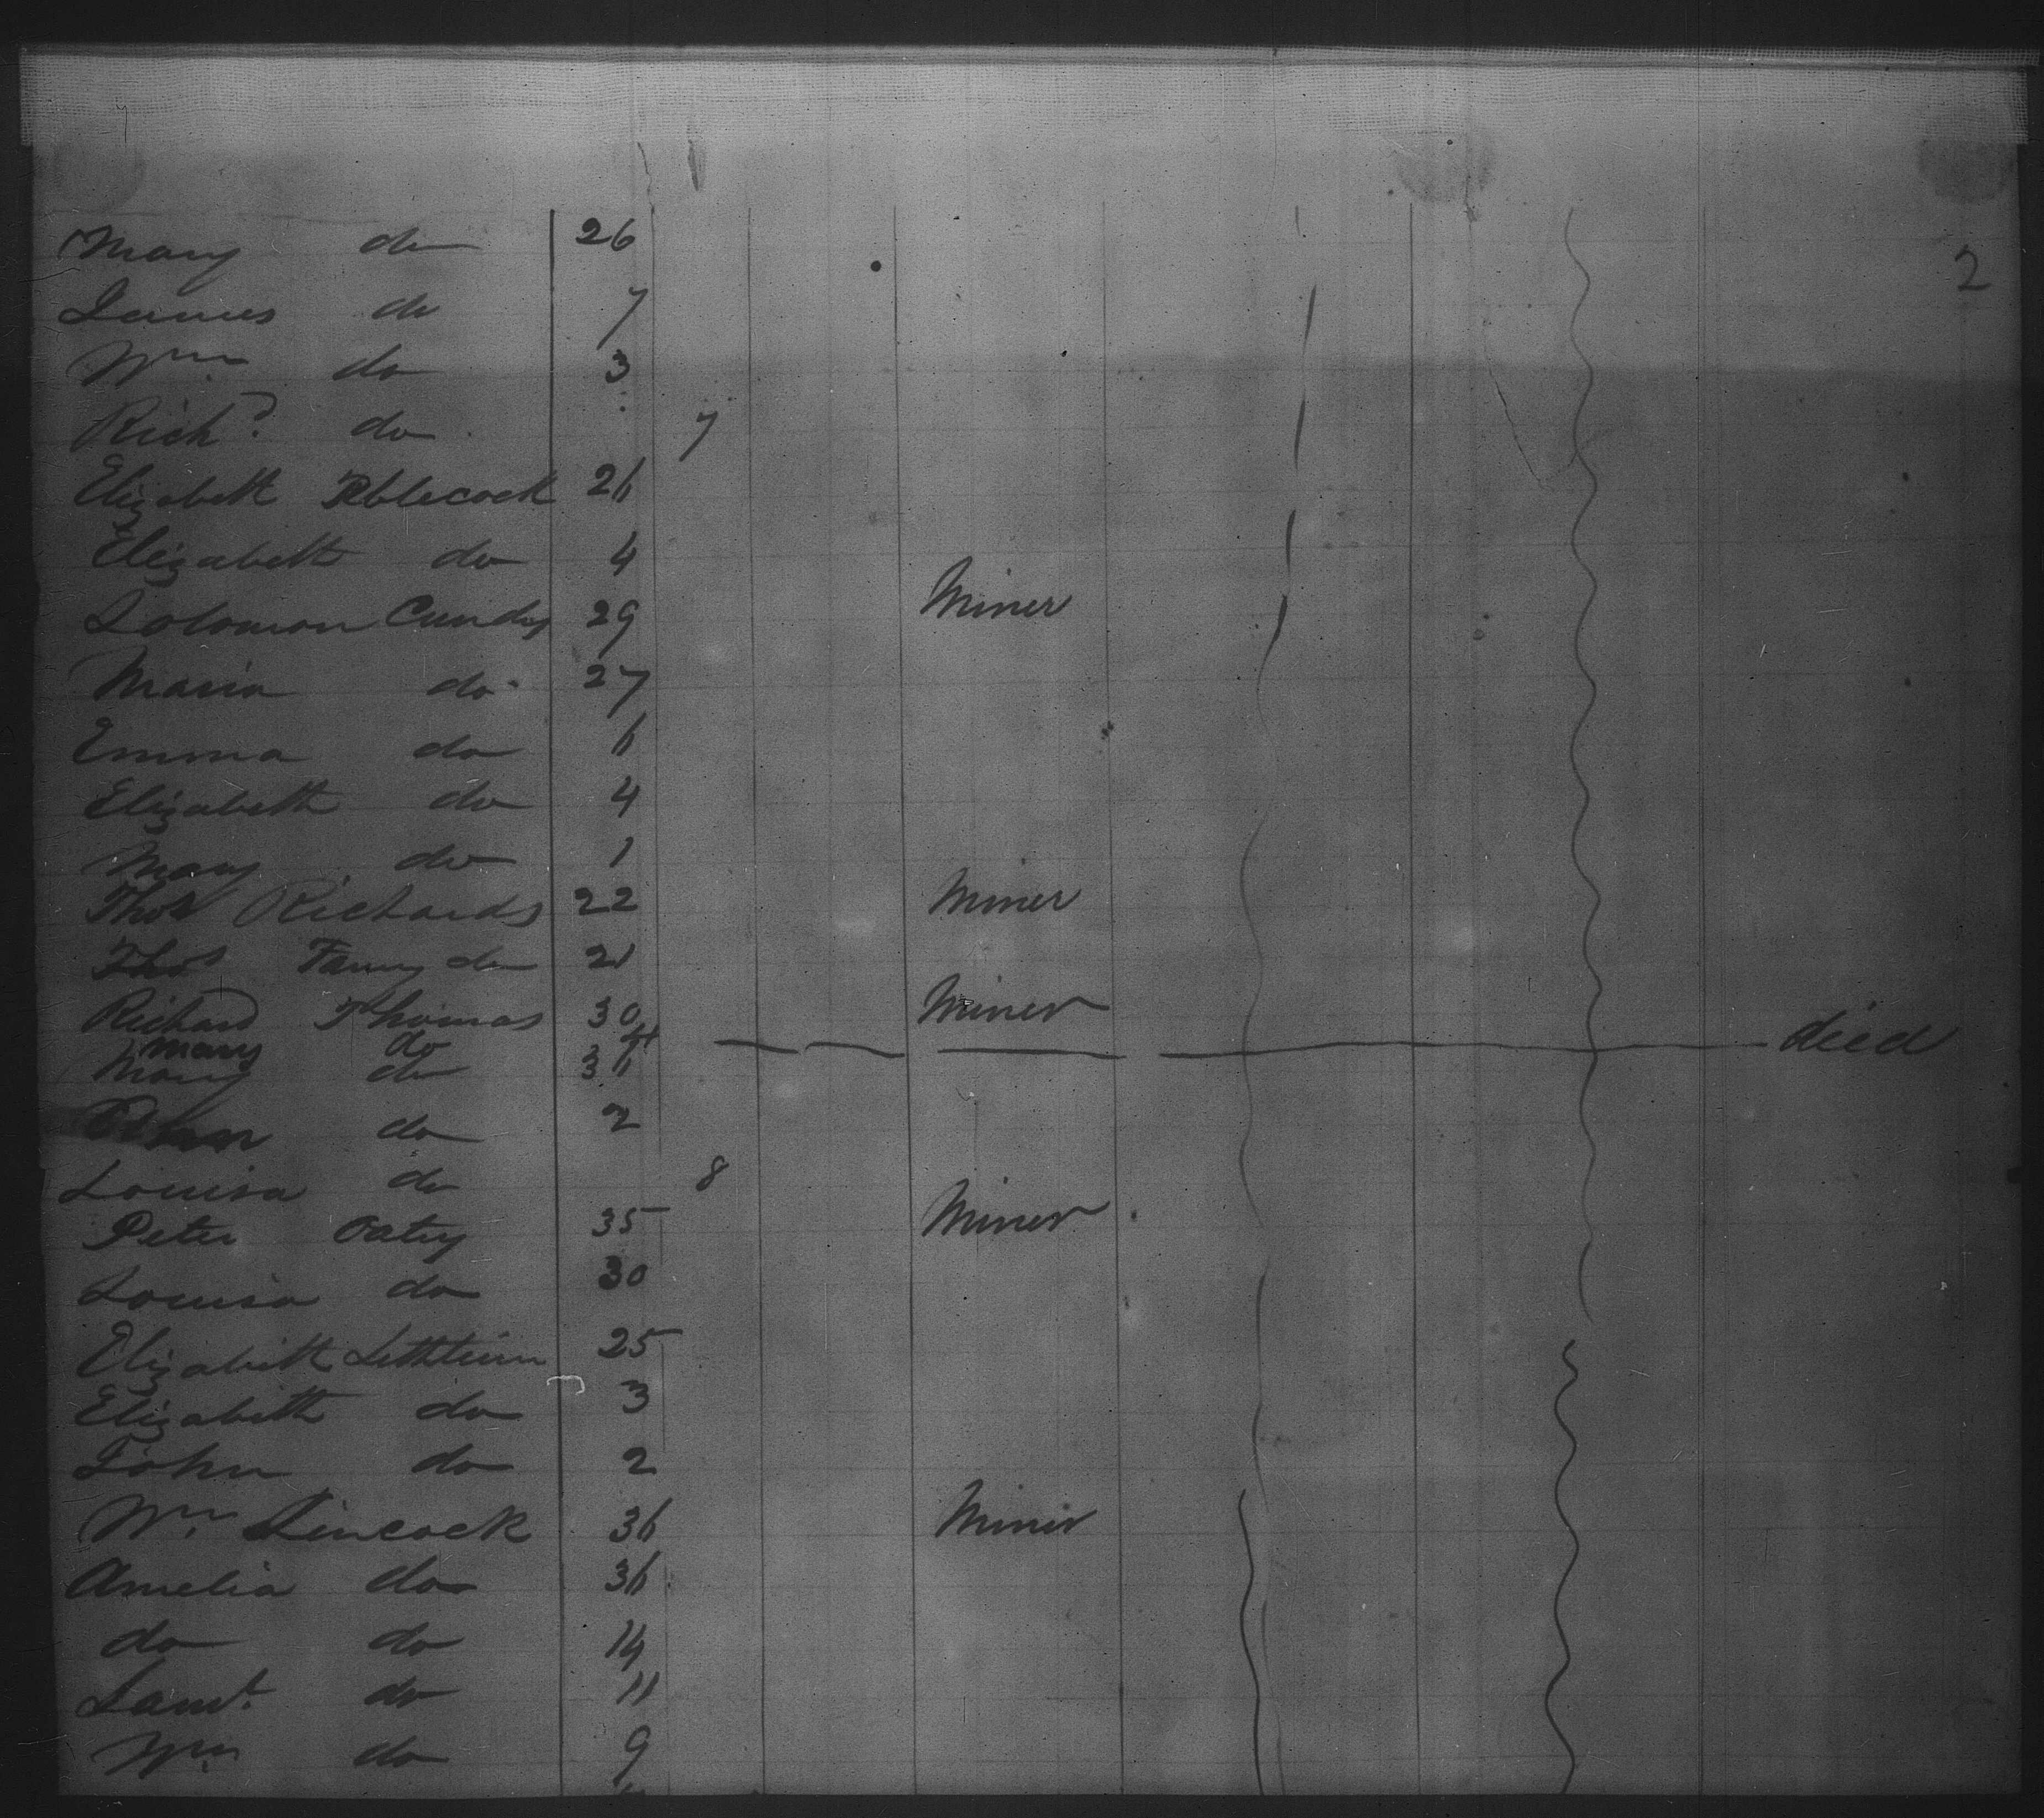 Mary do 26
2
James do 7
Wm do 3
Richd. do 7
Elizabeth 26
Elizabeth do 4
Solomon Cundy 29 Miner
Maria do 27
Emma do 6
Elizabeth do 4
Mary do 1
Thos Richards 22 Miner
Thos Fanny do 21
Richard Thomas 30 Miner
Mary do 4 died
Mary do 36
do 2
Louisa do 8
Peter Oatey 35 Miner
Louisa do 30
Elizabeth 25
Elizabeth do 3
John do 2
Wm. Lincock 36 Miner
Amelia do 36
do do 14
Saml. do 11
Wm do 9